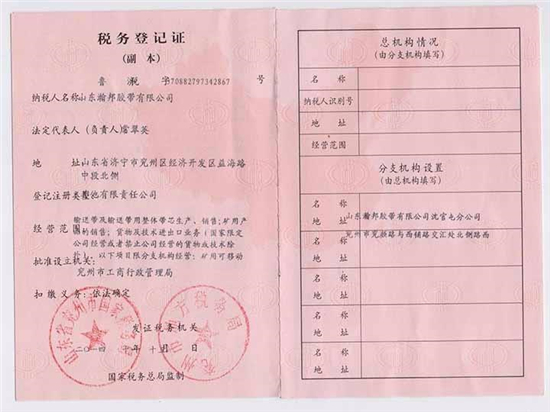 税务登记证
(副 本)
鲁 税 字 70882797342867 号
纳税人名称山东瀚邦胶带有限公司
法定代表人(负责人)
地 址 山东省济宁市兖州区经济开发区益海路
中段北侧
登记注册类型其他有限责任公司
经营范围
输送带及输送带用整体带芯生产、销售;矿用产
品的销售;货物及技术进出口业务(国家限定
公司经营或者禁止公司经营的货物或技术除
外)。以下项目限分支机构经营:矿用可移动
批准设立机关:
兖州市工商行政管理局
扣缴义务:依法确定
发证税务机关
二〇一四 年 十月 日
国家税务总局监制
总机构情况
(由分支机构填写)
名 称
纳税人识别号
地 址
经营范围
分支机构设置
(由总机构填写)
名 称
山东瀚邦胶带有限公司沈官屯分公司
地 址
兖州市兖颜路与西铺路交汇处北侧路西
名 称
地 址
名 称
地 址
名 称
地 址